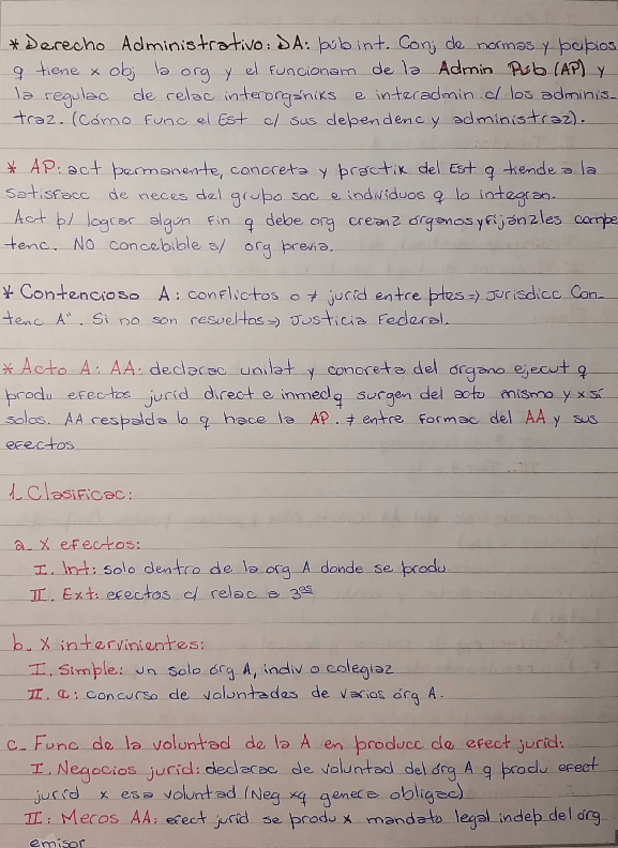 * Derecho Administrativo: DA: púb int. Conj de normas y pcipios
q tiene x obj la org y el funcionam de la Admin Pub (AP) y
la regulac de relac interorgániks e interadmin c/ los adminis-
traz. (Cómo func el Est c/ sus dependenc y administraz).
* AP: act permanente, concreta y práctik del Est q tiende a la
satisfacc de neces del grupo soc e individuos q lo integran.
Act p/ lograr algún fin q debe org creanz órganos y fijánzles compe
tenc. NO concebible s/ org previa.
* Contencioso A: conflictos o ≠ juríd entre ptes => Jurisdicc Con-
tenc Aª. Si no son resueltos => Justicia Federal.
* Acto A: AA: declarac unilat y concreta del órgano ejecut q
produ efectos juríd direct e inmed q surgen del acto mismo y x sí
solos. AA respalda lo q hace la AP. ≠ entre formac del AA y sus
efectos
1. Clasificac:
a. X efectos:
I. Int: solo dentro de la org A donde se produ
II. Ext: efectos c/ relac a 3ᵒˢ
b. X intervinientes:
I. Simple: un solo órg A, indiv o colegiaz
II. C: concurso de voluntades de varios órg A.
c. Func de la voluntad de la A en producc de efect juríd:
I. Negocios juríd: declarac de voluntad del órg A q produ efect
juríd x esa voluntad (Neg xq genera obligac)
II: Meros AA: efect juríd se produ x mandato legal indep del órg
emisor